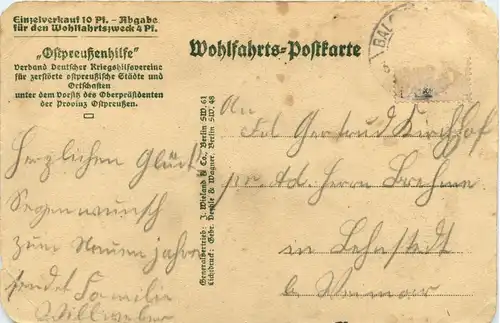 Einzelverkauf 10 Pf. - Abgabe
für den Wohlfahrtszweck 4 Pf.
„Ostpreußenhilfe“
Verband Deutscher Kriegshilfsvereine
für zerstörte ostpreußische Städte und
Ortschaften
unter dem Vorsitz des Oberpräsidenten
der Provinz Ostpreußen.
Wohlfahrts-Postkarte
BAL
Generalvertrieb: J. Wieland & Co., Berlin SW. 61
Lichtdruck: Gebr. & Wagner, Berlin SW. 48
Herzlichen Glück
Segenwunsch
zum Neuen Jahre
sendet Familie
Willweber
An
Frl Gertrud Kirchhof
pr. Ad. Herrn Brehme
in Lehnstedt
b. Weimar